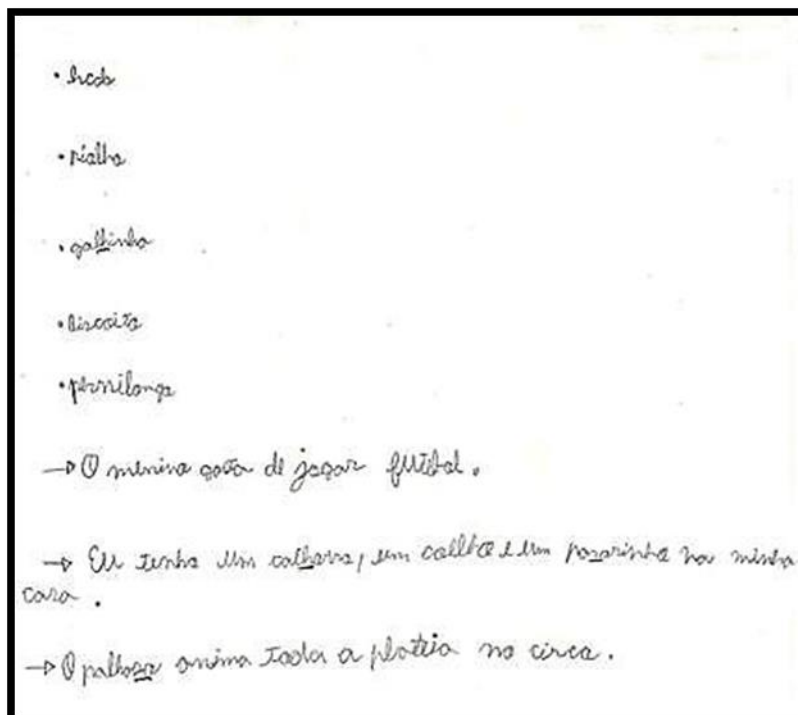 • pialho
• galhinha
• biscoito
• pernilongo
→ O menino gosta de jogar futebol.
→ Eu tenho um calhorro, um coellho e um pasarinho na minha
casa.
→ O palhoso anima toda a platéia no circo.